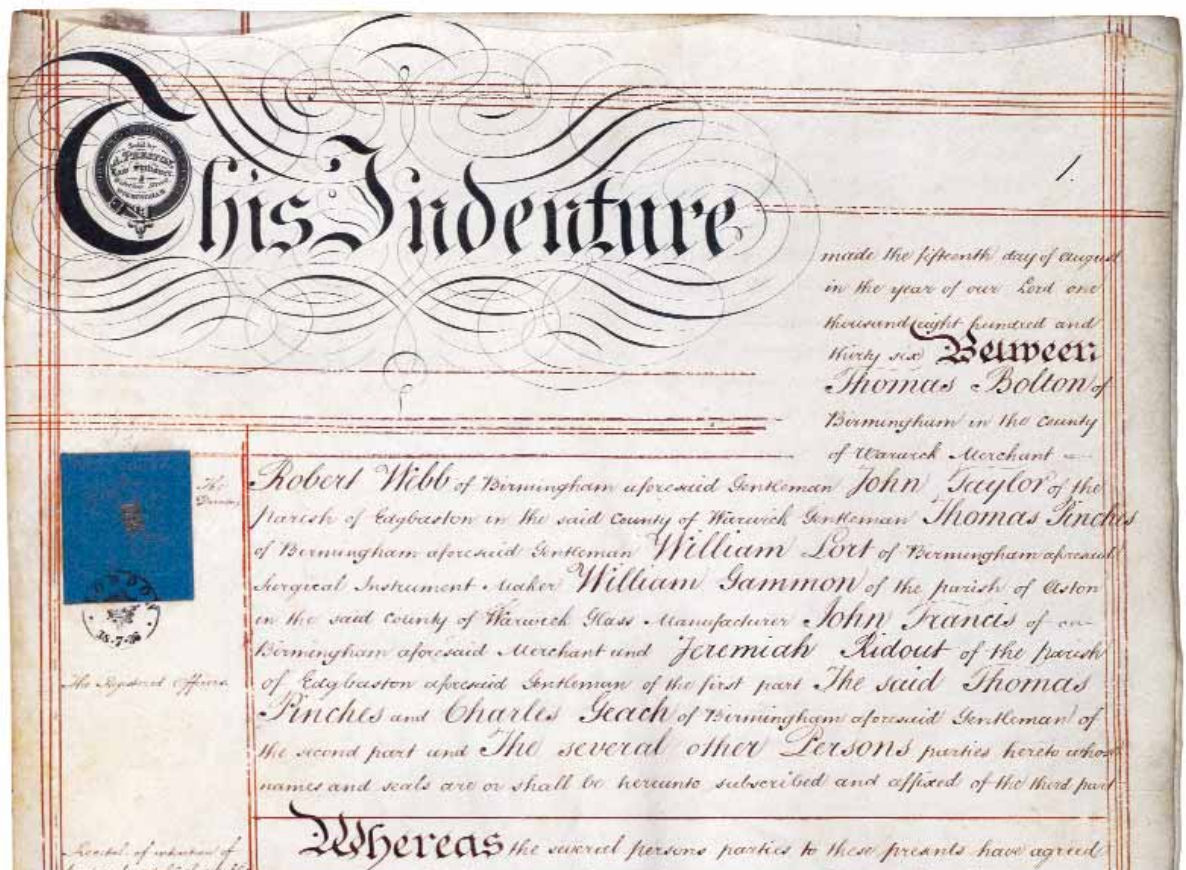 This Indenture
1.
made the fifteenth day of August
in the year of our Lord one
thousand eight hundred and
thirty six Between
Thomas Bolton of
Birmingham in the County
of Warwick Merchant
Robert Webb of Birmingham aforesaid Gentleman John Taylor of the
parish of Edgbaston in the said County of Warwick Gentleman Thomas Pinches
of Birmingham aforesaid Gentleman William Lort of Birmingham aforesaid
Surgical Instrument Maker William Gammon of the parish of Aston
in the said County of Warwick Glass Manufacturer John Francis of
Birmingham aforesaid Merchant and Jeremiah Ridout of the parish
of Edgbaston aforesaid Gentleman of the first part The said Thomas
Pinches and Charles Geach of Birmingham aforesaid Gentleman of
the second part and The several other Persons parties hereto whose
names and seals are or shall be hereunto subscribed and affixed of the third part
Whereas the several persons parties to these presents have agreed
Sold by
Law Stationer
BIRMINGHAM
The
LONDON
The Registered Officers
Recital of intention of